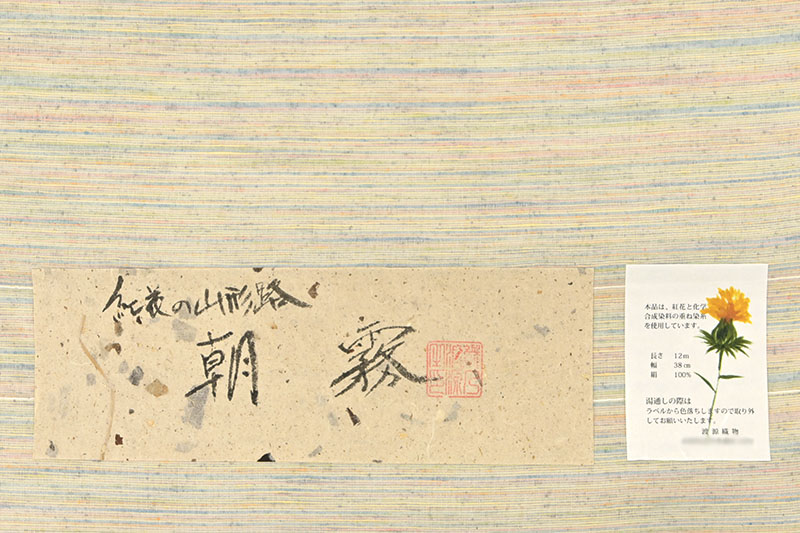 紅花の山形路
朝霧
本品は、紅花と化学
合成染料の重ね染糸
を使用しています。
長さ 12m
幅 38㎝
絹 100%
湯通しの際は
ラベルから色落ちしますので取り外
してお願いいたします。
渡源織物